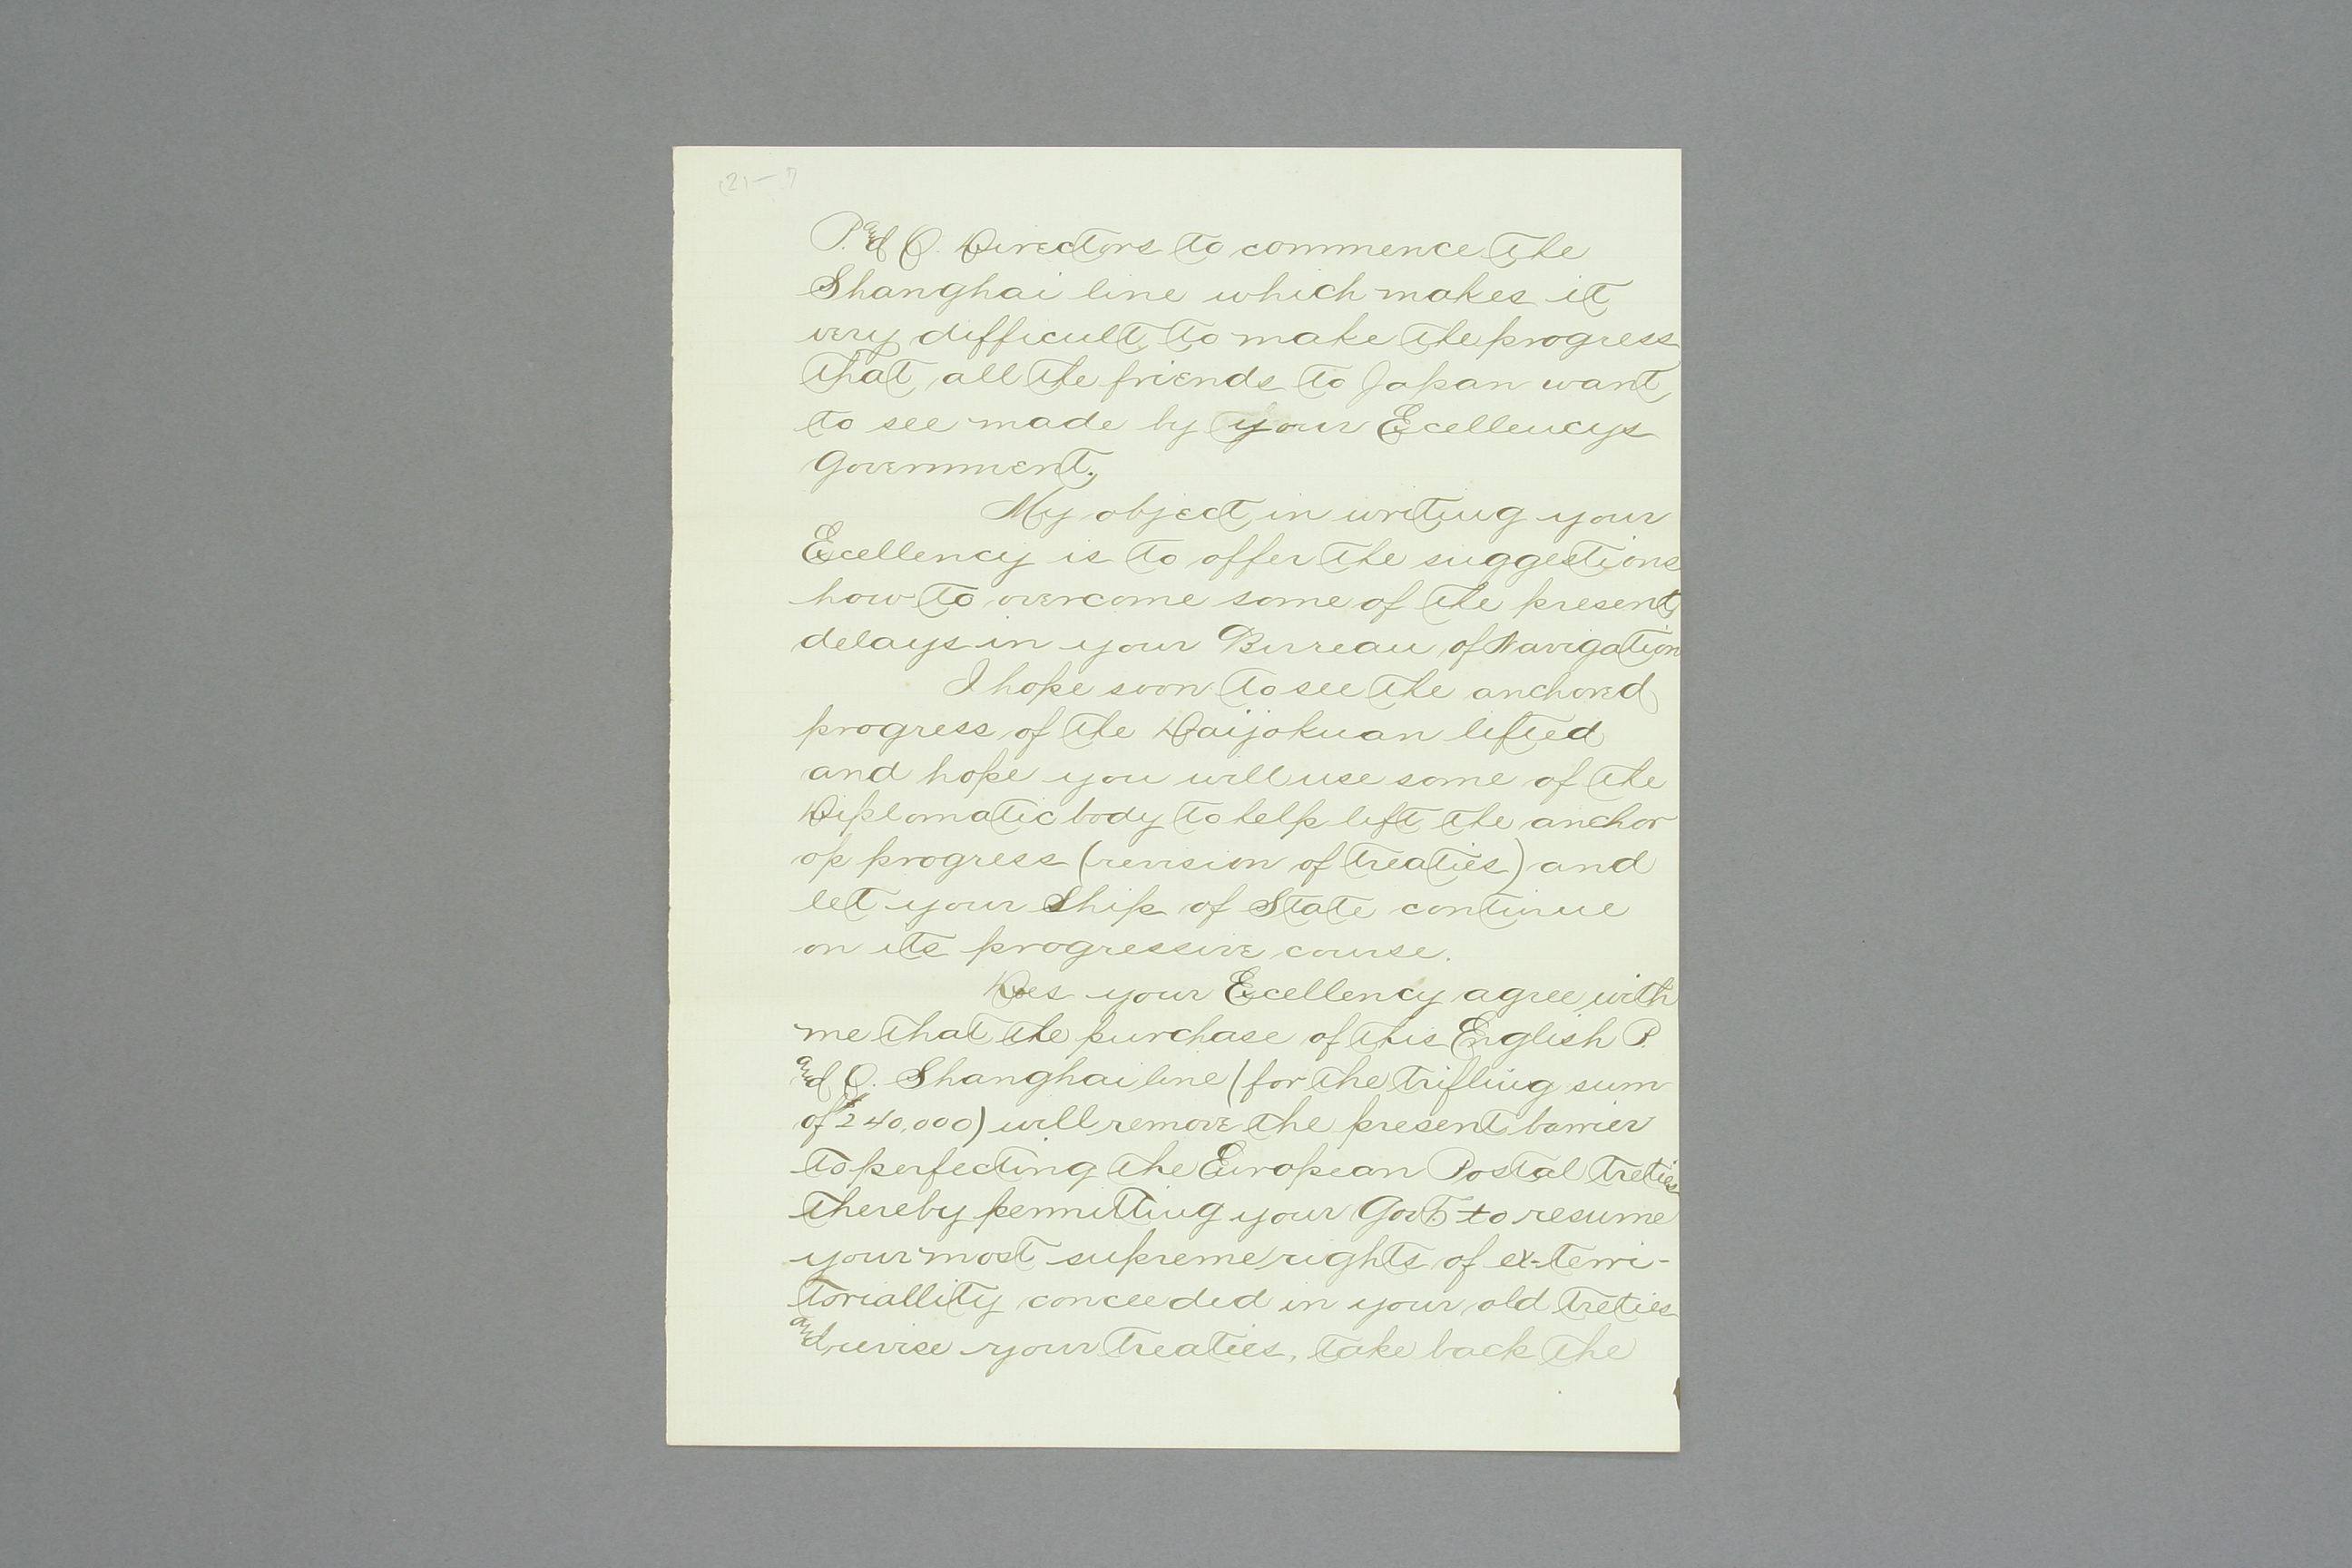 (2)-7
P. and O. Directors to commence the
Shanghai line which makes it
very difficult to make the progress
that all the friends to Japan want
to see made by your Excellencys
Government.
My object in writing your
Excellency is to offer the suggestions
how to overcome some of the present
delays in your Bureau of Navigation
I hope soon to see the anchored
progress of the Daijokuan lifted
and hope you will use some of the
Diplomatic body to help lift the anchor
op progress (revision of treaties) and
let your Ship of State continue
on its progressive course.
Does your Excellency agree with
me that the purchase of this English P.
and O. Shanghai line (for the trifling sum
of $240,000) will remove the present barrier
to perfecting the European Postal treties
thereby permitting your Govt. to resume
your most supreme rights of ex-terri-
toriallity conceeded in your old treties
and revise your treaties, take back the